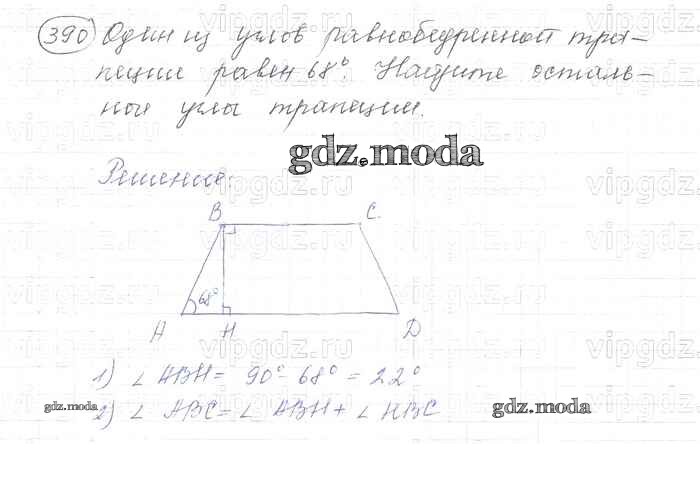 390 Один из углов равнобедренной тра-
пеции равен 68°. Найдите осталь-
ные углы трапеции.
gdz.moda
Решение:
B C
68°
A H D
1) ∠ ABH = 90° - 68° = 22°
2) ∠ ABC = ∠ ABH + ∠ HBC
gdz.moda gdz.moda
vipgdz.ru